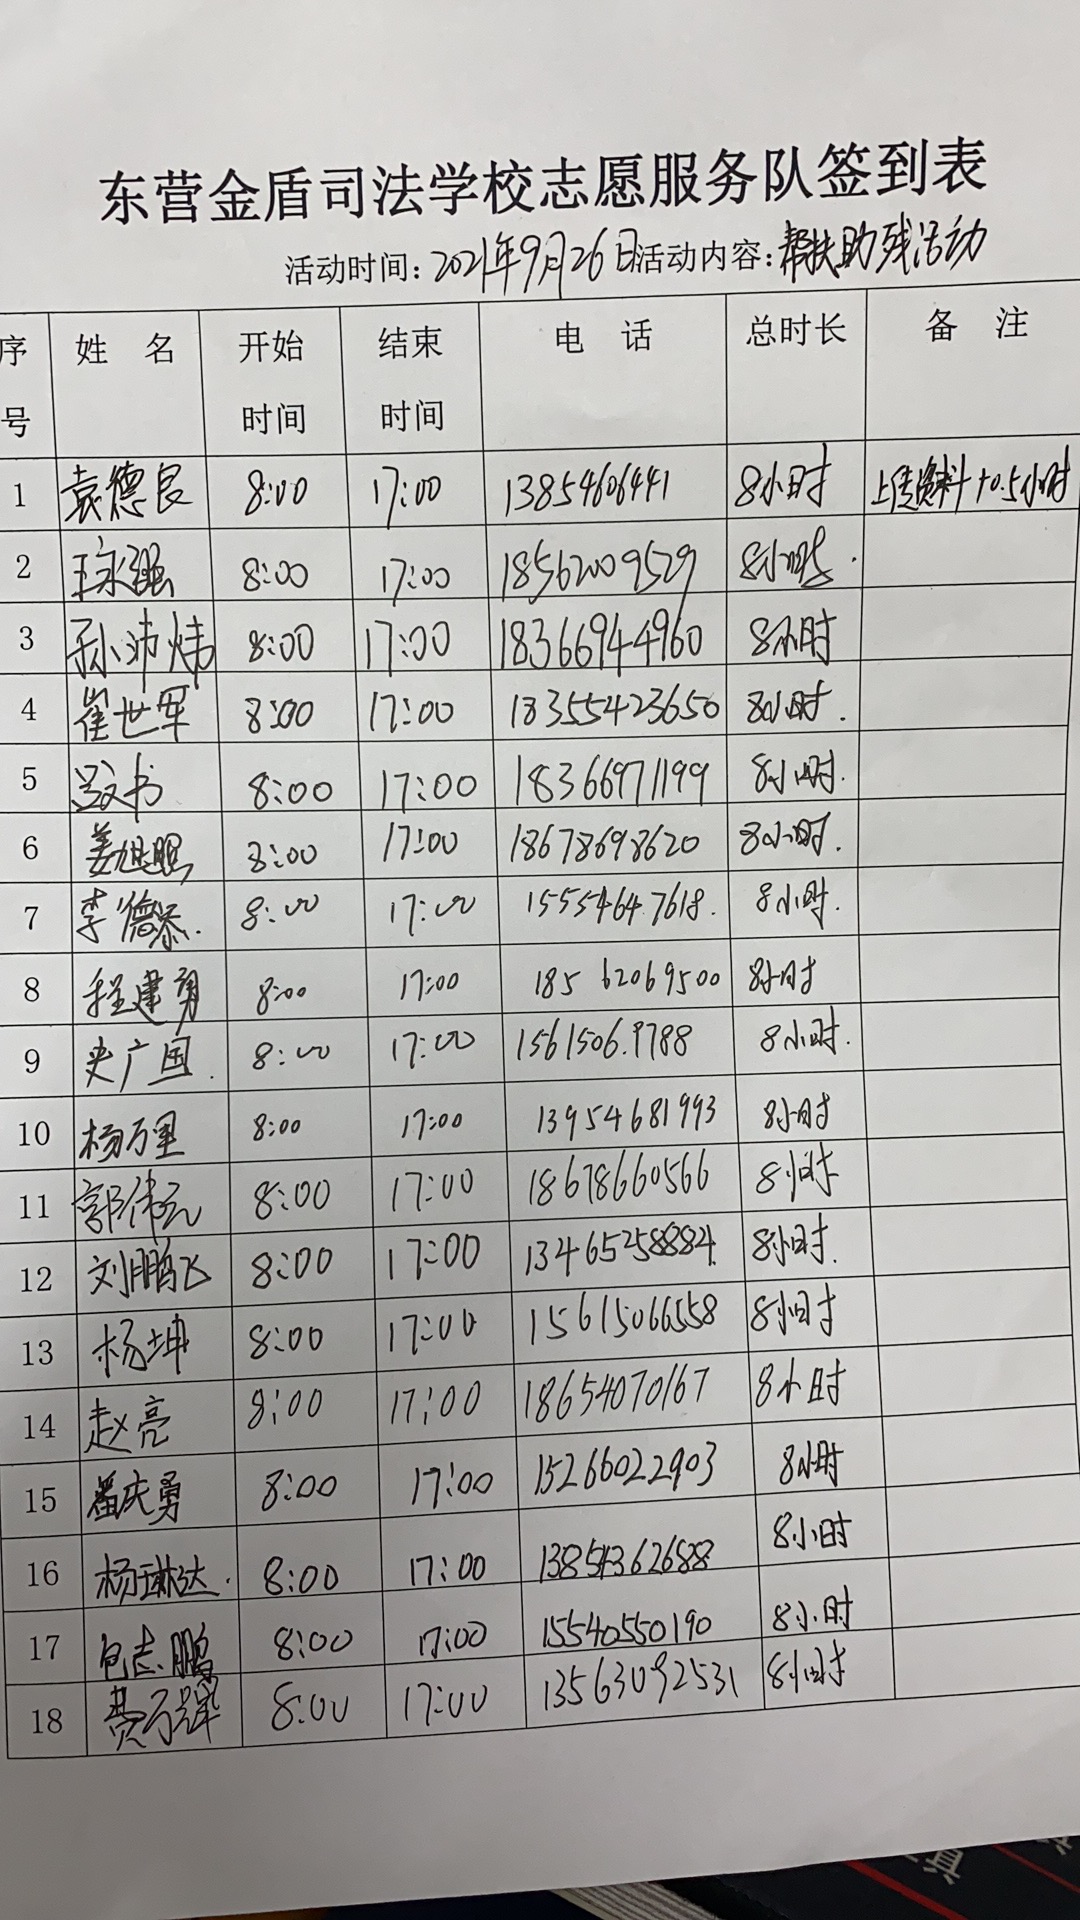 东营金盾司法学校志愿服务队签到表
活动时间：2021年9月26日活动内容：帮扶助残活动
序号 姓 名 开始时间 结束时间 电 话 总时长 备 注
1 袁德良 8:00 17:00 13854606441 8小时 上传资料+0.5小时
2 王永强 8:00 17:00 18562009529 8小时.
3 孙沛炜 8:00 17:00 18366944960 8小时
4 崔世军 8:00 17:00 18355423650 8小时.
5 8:00 17:00 18366971199 8小时.
6 姜旭照 8:00 17:00 18678698620 8小时.
7 李德泰. 8:00 17:00 15554647618. 8小时.
8 程建勇 8:00 17:00 18562069500 8小时
9 史广国. 8:00 17:00 15615069788 8小时.
10 杨万里 8:00 17:00 13954681993 8小时
11 郭伟元 8:00 17:00 18678660566 8小时
12 刘鹏飞 8:00 17:00 13465258884. 8小时.
13 杨坤 8:00 17:00 15615066558 8小时
14 赵亮 8:00 17:00 18654070167 8小时
15 庆勇 8:00 17:00 15266022903 8小时
16 杨琳达. 8:00 17:00 8小时
17 包志鹏 8:00 17:00 15540550190 8小时
18 费万辉 8:00 17:00 13563092531 8小时